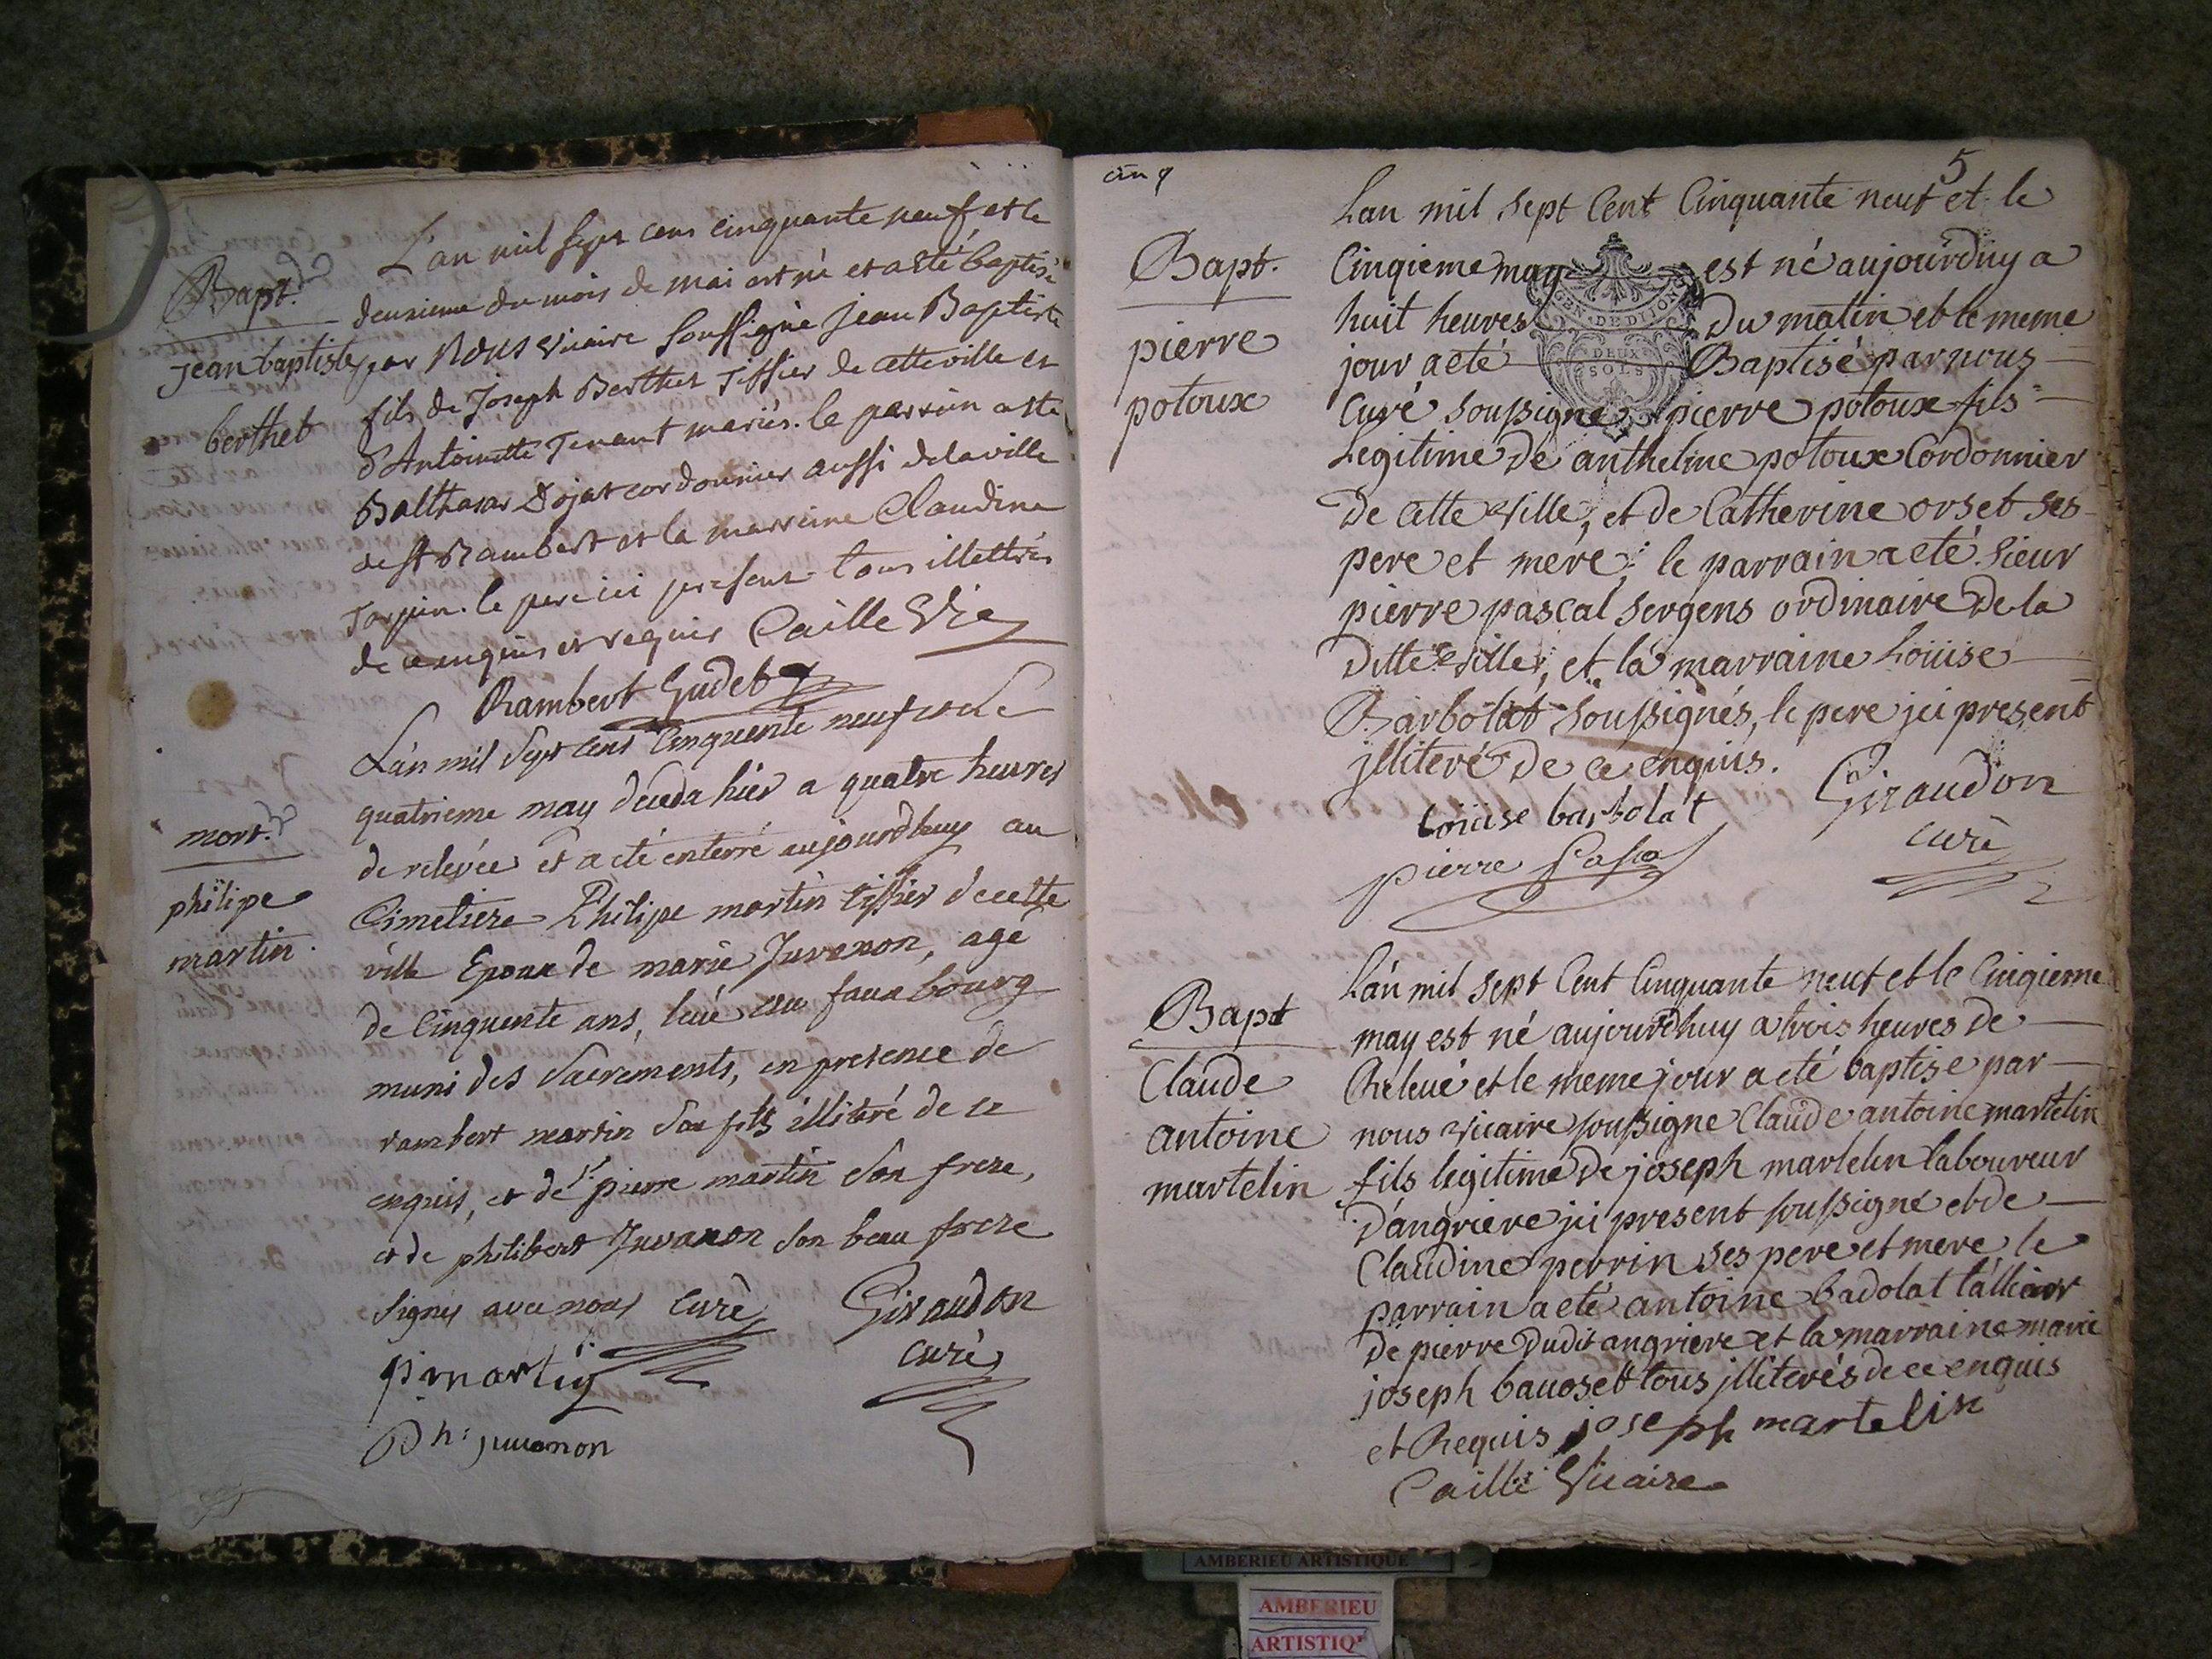 Bapt.
jean baptiste
berthet
L'an mil sept cens cinquante neuf et le
deuxieme du mois de mai est né et a été baptisé
par Nous vicaire soussigné Jean Baptiste
fils de Joseph Berthet Tissier de cette ville et
d'Antoinette Tenant mariés. le parrain a été
Balthasar Dojat cordonnier aussi de la ville
de st Rambert et la marraine Claudine
Tarpin. le pere ici present tous illettrés
de ce enquis et requis Caille Vic
Rambert Gudet
mort.
philipe
martin.
L'an mil sept cens Cinquente neuf et le
quatrieme may deceda hier a quatre heures
de relevée et a été enterré aujourdhuy au
Cimetiere Philipe martin tissier de cette
ville Epoux de marie Juvanon, age
de Cinquente ans, au fauxbourg
muni des Sacrements, en presence de
rambert martin son fils illiteré de ce
enquis, et de Sr pierre martin son frere,
et de philibert Juvanon son beau frere
signés avec nous curè
Giraudon
curè
p martin
Ph: juvanon
cinq
5
Bapt.
pierre
potoux
Lan mil sept Cent Cinquante neuf et le
Cinqieme may est né aujourduy a
huit heures Du matin et le meme
jour a eté Baptisé par nous
Curé soussigné pierre potoux fils
Legitime De anthelme potoux Cordonnier
De cette ville, et de Catherine orset ses
pere et mere; le parrain a eté sieur
pierre pascal sergens ordinaire De la
Ditte ville, et la marraine Loüise
Barbolat soussignés, le pere jci present
jlliteré De ce enquis.
GEN. DE DIJON
DEUX
SOLS
Loüise barbolat
Giraudon
curè
pierre Pascal
Bapt
Claude
antoine
martelin
L'an mil sept Cent Cinquante neuf et le Cinqieme
may est né aujourdhuy a trois heures de
Relevé et le meme jour a eté baptisé par
nous vicaire soussigne Claude antoine martelin
fils legitime De joseph martelin laboureur
D'angriere jci present soussigné et de
Claudine perrin ses pere et mere le
parrain a eté antoine badolat
De pierre Dudit angriere et la marraine marie
joseph bavoset tous jlliterés de ce enquis
et Requis joseph martelin
Caille Vicaire
AMBERIEU ARTISTIQUE
AMBERIEU
ARTISTIQ